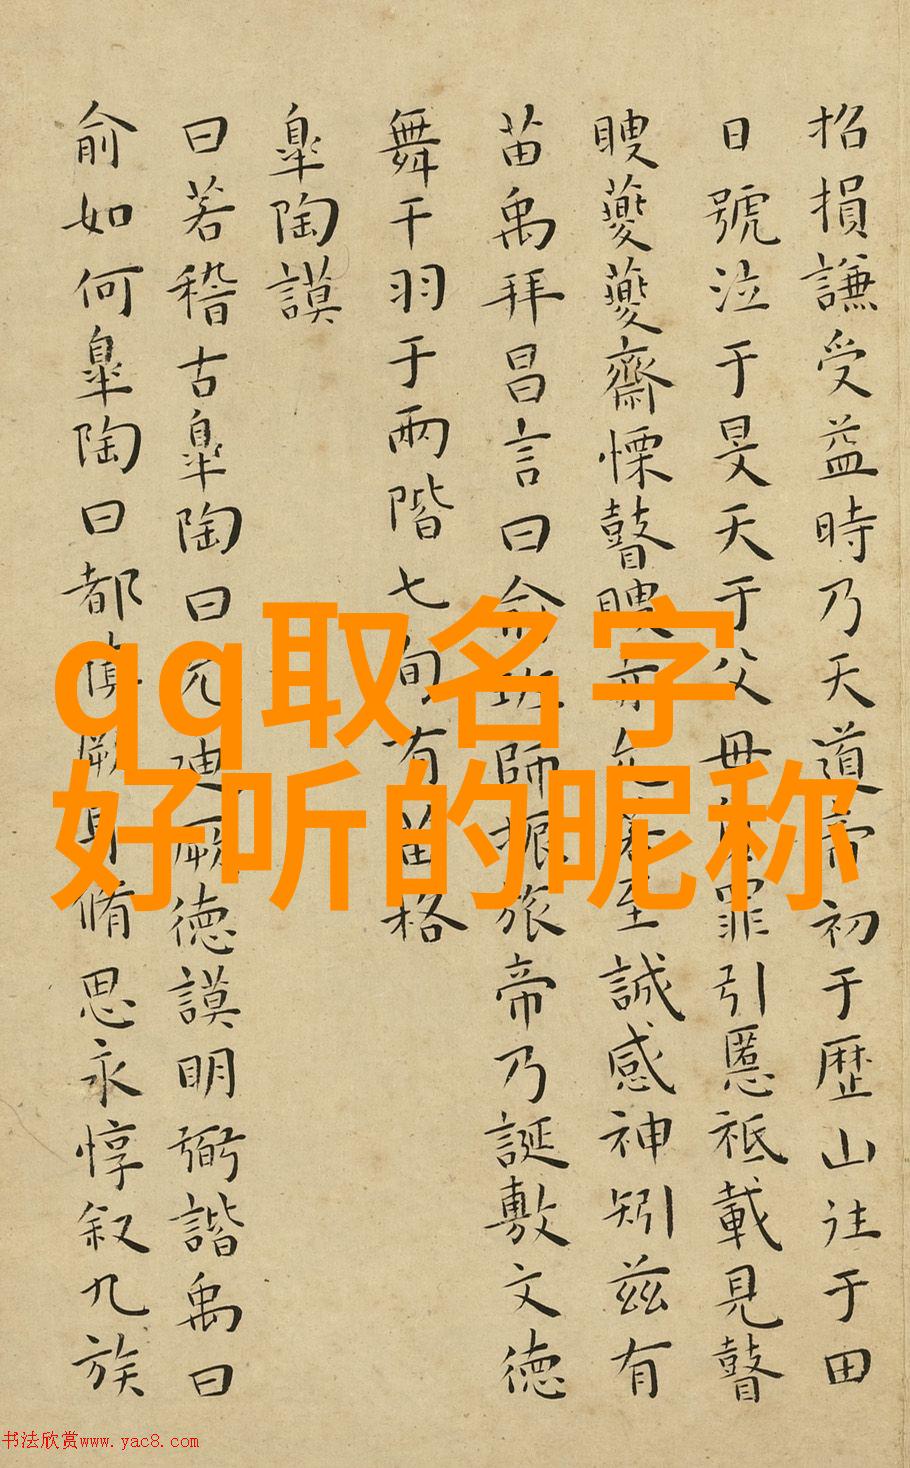 招損謙受益時乃天道帝初于歷山往于田
日號泣于旻天于父母負罪引慝祗載見瞽
瞍夔夔齋慄瞽瞍亦允若至諴感神矧茲有
苗禹拜昌言曰俞班師振旅帝乃誕敷文德
舞干羽于兩階七旬有苗格
皐陶謨
曰若稽古皐陶曰允迪厥德謨明弼諧禹曰
俞如何皐陶曰都慎厥身脩思永惇叙九族
qq取名字
好听的昵称
书法欣赏www.yac8.com